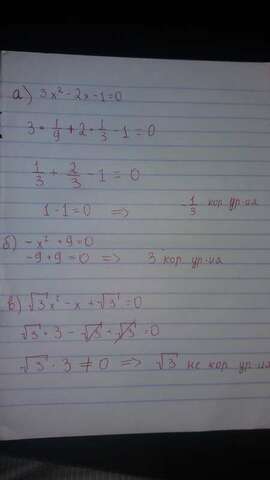 а) 3x² - 2x - 1 = 0
3 · 1/9 + 2 · 1/3 - 1 = 0
1/3 + 2/3 - 1 = 0
1 - 1 = 0 => -1/3 кор. ур-иа
б) -x² + 9 = 0
-9 + 9 = 0 => 3 кор. ур-иа
в) √3 x² - x + √3 = 0
√3 · 3 - √3 + √3 = 0
√3 · 3 ≠ 0 => √3 не кор. ур-иа